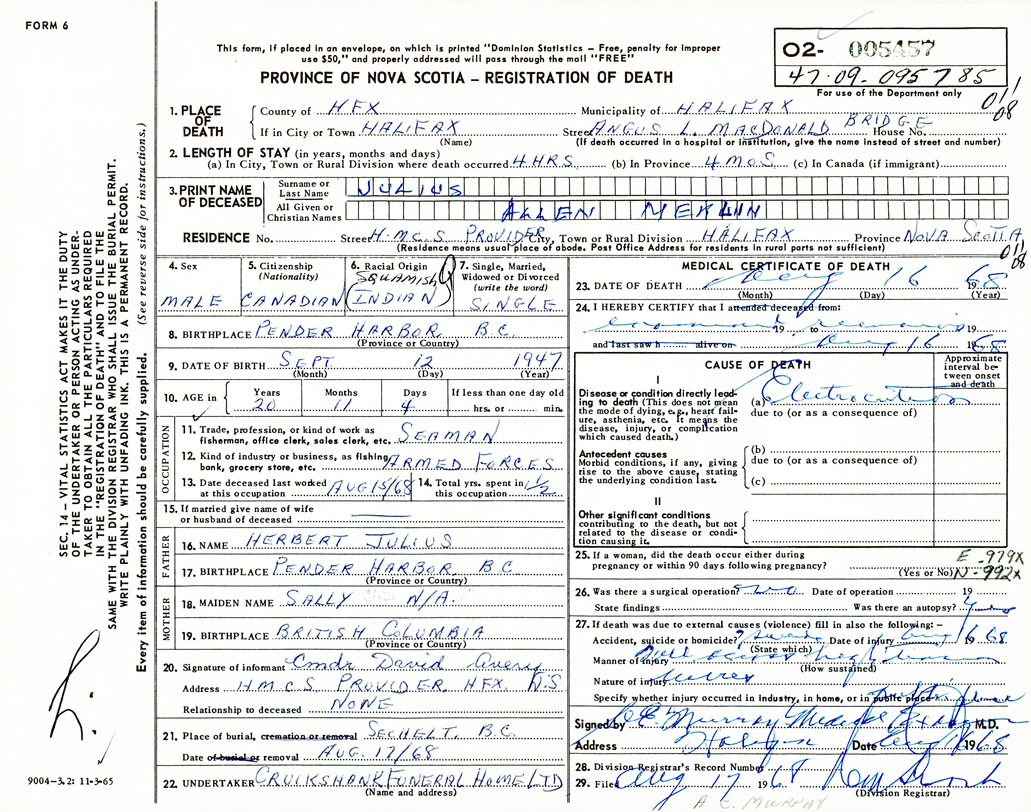 FORM 6
This form, if placed in an envelope, on which is printed "Dominion Statistics – Free, penalty for improper
use $50," and properly addressed will pass through the mail "FREE"
PROVINCE OF NOVA SCOTIA – REGISTRATION OF DEATH
02- 005457
47-09-095785
For use of the Department only
011/08
1. PLACE OF DEATH
County of HFX Municipality of HALIFAX
If in City or Town HALIFAX Street ANGUS L. MACDONALD BRIDGE House No.
(Name) (If death occurred in a hospital or institution, give the name instead of street and number)
2. LENGTH OF STAY (in years, months and days)
(a) In City, Town or Rural Division where death occurred 4 HRS (b) In Province 4 MOS (c) In Canada (if immigrant)
3. PRINT NAME OF DECEASED
Surname or Last Name JULIUS
All Given or Christian Names ALLEN MERLIN
RESIDENCE No. Street H.M.C.S PROVIDER City, Town or Rural Division HALIFAX Province NOVA SCOTIA
(Residence means usual place of abode. Post Office Address for residents in rural parts not sufficient)
011/08
4. Sex MALE
5. Citizenship (Nationality) CANADIAN
6. Racial Origin SQUAMISH (INDIAN)
7. Single, Married, Widowed or Divorced (write the word) SINGLE
8. BIRTHPLACE PENDER HARBOR B.C.
(Province or Country)
9. DATE OF BIRTH SEPT 12 1947
(Month) (Day) (Year)
10. AGE in Years 20 Months 11 Days 4 If less than one day old hrs. or min.
OCCUPATION
11. Trade, profession, or kind of work as fisherman, office clerk, sales clerk, etc. SEAMAN
12. Kind of industry or business, as fishing, bank, grocery store, etc. ARMED FORCES
13. Date deceased last worked at this occupation AUG 15/68 14. Total yrs. spent in this occupation 1½
15. If married give name of wife or husband of deceased
FATHER
16. NAME HERBERT JULIUS
17. BIRTHPLACE PENDER HARBOR B.C
(Province or Country)
MOTHER
18. MAIDEN NAME SALLY N/A.
19. BIRTHPLACE BRITISH COLUMBIA
(Province or Country)
20. Signature of informant Cmdr David Avery
Address H.M.C.S PROVIDER, HFX. N.S
Relationship to deceased NONE
21. Place of burial, cremation or removal SECHELT. B.C.
Date of burial or removal AUG. 17/68
22. UNDERTAKER CRUIKSHANK FUNERAL HOME LTD
(Name and address)
MEDICAL CERTIFICATE OF DEATH
23. DATE OF DEATH Aug 16 1968
(Month) (Day) (Year)
24. I HEREBY CERTIFY that I attended deceased from:
examined remains 19 to 19
and last saw h alive on Aug 16 1968
CAUSE OF DEATH
Approximate interval between onset and death
I
Disease or condition directly leading to death (This does not mean the mode of dying, e.g., heart failure, asthenia, etc. It means the disease, injury, or complication which caused death.)
(a) Electrocution
due to (or as a consequence of)
Antecedent causes
Morbid conditions, if any, giving rise to the above cause, stating the underlying condition last.
(b)
due to (or as a consequence of)
(c)
II
Other significant conditions contributing to the death, but not related to the disease or condition causing it.
25. If a woman, did the death occur either during pregnancy or within 90 days following pregnancy?
(Yes or No)
E-979X
N-992X
26. Was there a surgical operation? No Date of operation 19
State findings Was there an autopsy? Yes
27. If death was due to external causes (violence) fill in also the following:–
Accident, suicide or homicide? Date of injury Aug 16 1968
(State which)
Manner of injury
(How sustained)
Nature of injury
Specify whether injury occurred in industry, in home, or in public place
Signed by C.E. Murray Medical Examiner M.D.
Address Halifax Date Aug 16 1968
28. Division Registrar's Record Number
29. Filed Aug 17 1968
(Division Registrar)
A E MURRAY
SEC. 14 – VITAL STATISTICS ACT MAKES IT THE DUTY
OF THE UNDERTAKER OR PERSON ACTING AS UNDER-
TAKER TO OBTAIN ALL THE PARTICULARS REQUIRED
IN THE "REGISTRATION OF DEATH" AND TO FILE THE
SAME WITH THE DIVISION REGISTRAR WHO SHALL ISSUE THE BURIAL PERMIT.
WRITE PLAINLY WITH UNFADING INK. THIS IS A PERMANENT RECORD.
Every item of information should be carefully supplied. (See reverse side for instructions.)
9004-3.2: 11-3-65